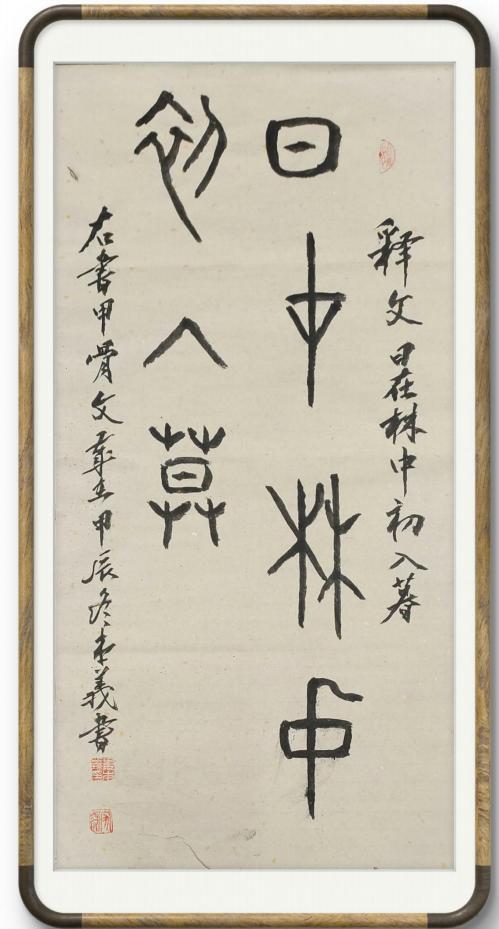 释文日在林中初入暮
日在林中
初入暮
右書甲骨文甲辰冬義書